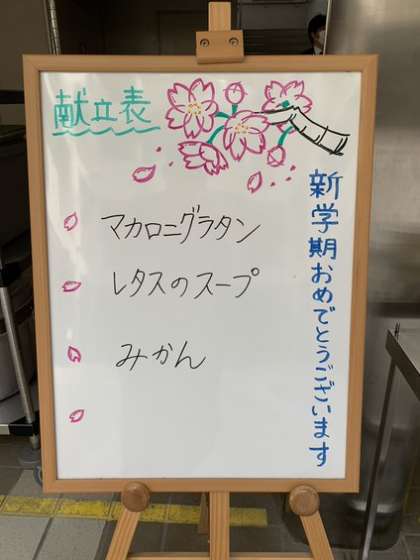 献立表
マカロニグラタン
レタスのスープ
みかん
新学期おめでとうございます